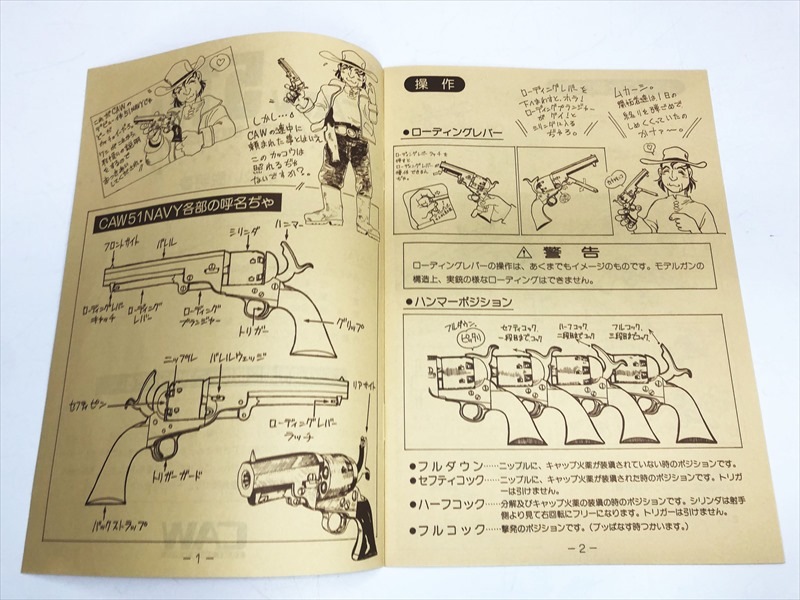 しかし…。
CAWの連中に
頼まれた事とはいえ
このカッコウは
照れるぢゃ
ないですか?。
CAW51NAVY各部の呼名ぢゃ
フロントサイト
バレル
シリンダ
ハンマー
ローディングレバー
キャッチ
ローディング
レバー
ローディング
プランジャー
トリガー
グリップ
ニップル
バレルウェッジ
リアサイト
セフティピン
ローディングレバー
ラッチ
トリガーガード
バックストラップ
CAW
-1-
操作
ローディングレバーを
下へまわすと、ホラ!
ローディングプランジャー
が
シリンダに入る
ムカシ。
●ローディングレバー
警告
ローディングレバーの操作は、あくまでもイメージのものです。モデルガンの
構造上、実銃の様なローディングはできません。
●ハンマーポジション
フルダウン
ピッタリ
セフティコック
一段目までコック
ハーフコック
二段目までコック
フルコック
三段目までコック
●フルダウン……ニップルに、キャップ火薬が装填されていない時のポジションです。
●セフティコック……ニップルに、キャップ火薬が装填された時のポジションです。トリガ
ーは引けません。
●ハーフコック……分解及びキャップ火薬の装填の時のポジションです。シリンダは射手
側より見て右回転にフリーになります。トリガーは引けません。
●フルコック……撃発のポジションです。(ブッぱなす時つかいます。)
-2-